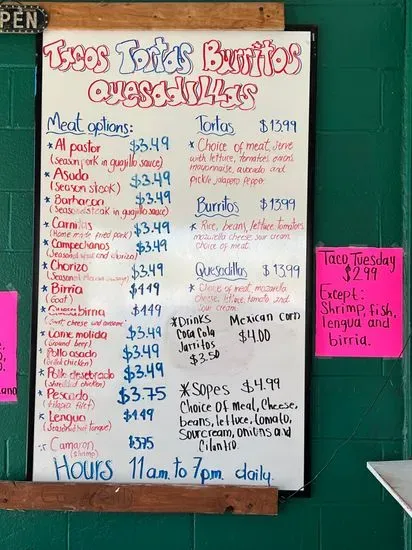 PEN
Tacos Tortas Burritos
Quesadillas
Meat options:
* Al pastor $3.49
(season pork in guajillo sauce)
* Asada $3.49
(Season steak)
* Barbacoa $3.49
(Seasoned steak in guajillo sauce)
* Carnitas $3.49
(Home made fried pork)
* Campechanos $3.49
(Seasoned steak and chorizo)
* Chorizo $3.49
(Seasoned sausage)
* Birria $4.49
(Goat)
* birria $4.49
* Carne molida $3.49
(Ground beef)
* Pollo asado $3.49
(Grilled chicken)
* Pollo desebrado $3.49
(shredded chicken)
* Pescado $3.75
(tilapia filet)
* Lengua $4.49
(Seasoned beef tongue)
* Camaron $3.75
(shrimp)
Tortas $13.99
* Choice of meat, serve
with lettuce, tomatoes, onions
mayonnaise, avocado and
pickle jalapeno pepper
Burritos $13.99
* Rice, beans, lettuce, tomatoes,
mozarella cheese, sour cream,
choice of meat.
Quesadillas $13.99
* Choice of meat, mozarella
cheese, lettuce, tomato and
sour cream
* Drinks
Coca Cola
Jarritos
$3.50
Mexican corn
$4.00
* Sopes $4.99
Choice of meat, Cheese,
beans, lettuce, tomato,
sour cream, onions and
Cilantro
Hours 11am. to 7pm. daily.
Taco Tuesday
$2.99
Except:
Shrimp, fish,
lengua and
birria.